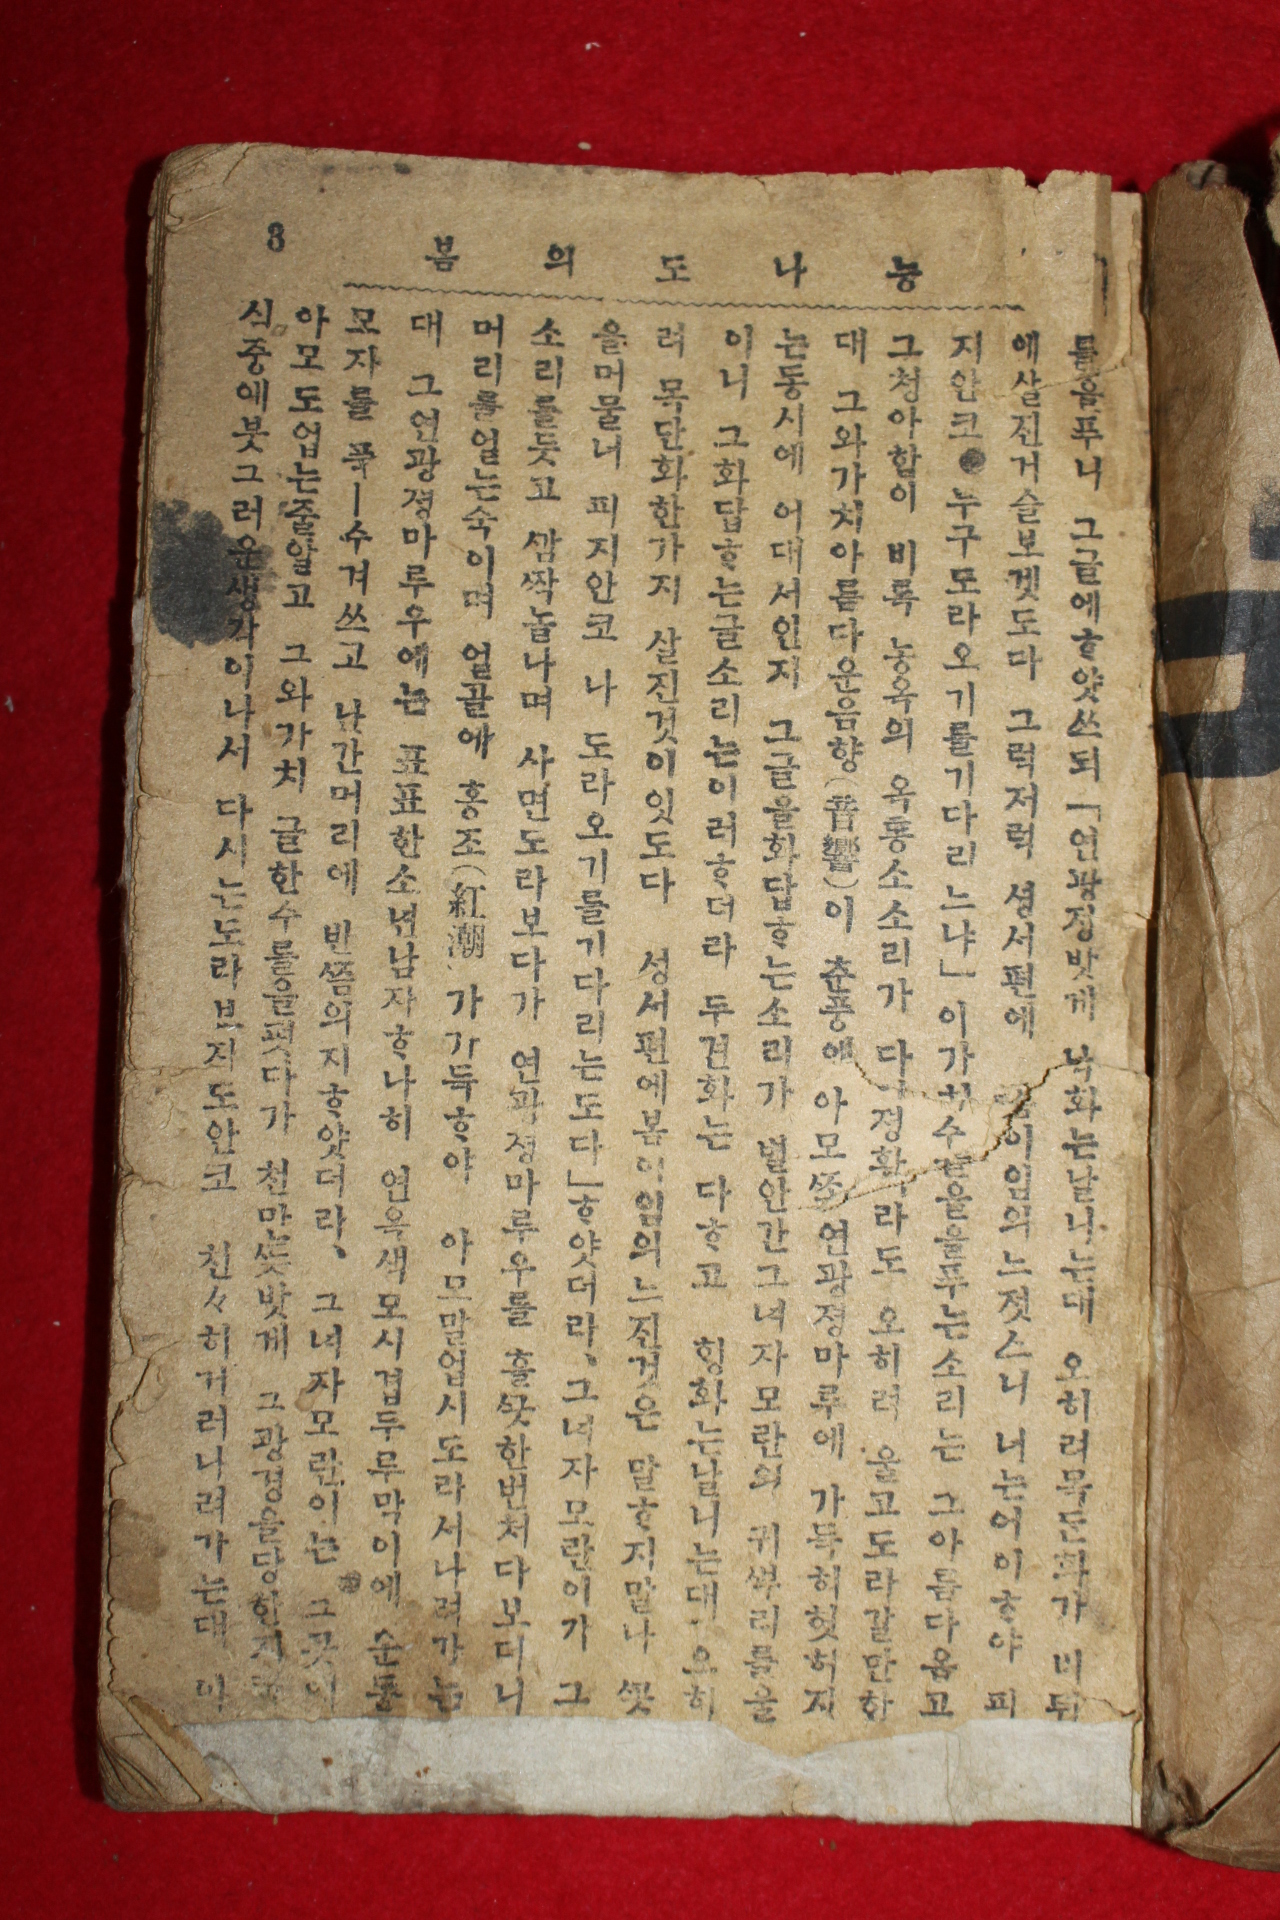 봄의도나능
3
를읊푸니 그글에ᄒᆞ얏쓰되 「연광정밧게 낙화는날니는대 오히려목단화가 비뒤
에살진거슬보겟도다 그럭저럭 셩서편에 봄이임의느젓스니 너는어이ᄒᆞ야 피
지안코 누구도라오기를기다리느냐」 이가치수 을을푸는소리는 그아름다옴고
그청아함이 비록 농옥의 옥통소소리가 다 정확 라도 오히려 울고도라갈만한
대 그와가치아름다운음향(音響)이 춘풍에 아모ᄶᅩ록연광정마루에 가득히헛허지
는동시에 어대서인지 그글을화답ᄒᆞ는소리가 별안간그녀자모란의 귀ᄲᅮ리를울
이니 그화답ᄒᆞ는글소리는이러ᄒᆞ더라 두견화는 다ᄒᆞ고 힝화는날니는대 오히
려 목단화한가지 살진것이잇도다 성서편에봄이임의느진것은 말ᄒᆞ지말나 ᄭᅩᆺ
을머물너 피지안코 나 도라오기를기다리는도다」ᄒᆞ얏더라、그녀자모란이가 그
소리를듯고 ᄭᅡᆷ짝놀나며 사면도라보다가 연광정마루우를 흘ᄭᅳᆺ한번처다보더니
머리를업는숙이며 얼골에 홍조(紅潮)가가득ᄒᆞ야 아모말업시도라서나려가는
대 그연광졍마루우에는 표표한소년남자ᄒᆞ나히 연옥색모시겹두루막이에 순통
모자를 푹ㅣ수겨쓰고 난간머리에 반ᄶᅳᆷ의지ᄒᆞ얏더라、 그녀자모란이는 그곳이
아모도업는줄알고 그와가치 글한수를을펏다가 천만ᄯᅳᆺ밧게 그광경을당한지
심중에붓그러운생각이나서 다시는도라보지도안코 천々히거러나려가는대 이